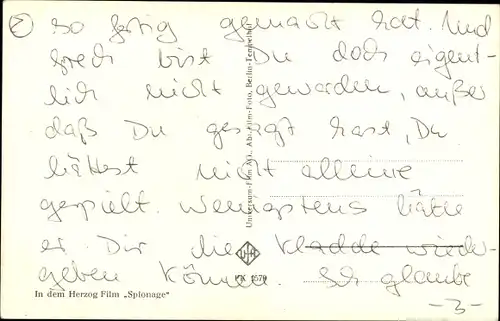 2
so fertig gemacht hat. Und
frech bist Du doch eigent-
lich nicht geworden, außer
daß Du gesagt hast, Du
hättest nicht alleine
gespielt. Wenigstens hätte
er Dir die Kladde wieder-
geben können. Ich glaube
-3-
Universum-Film A.G., Ab.-Film-Foto, Berlin-Tempelhof
FK 1670
In dem Herzog Film „Spionage"